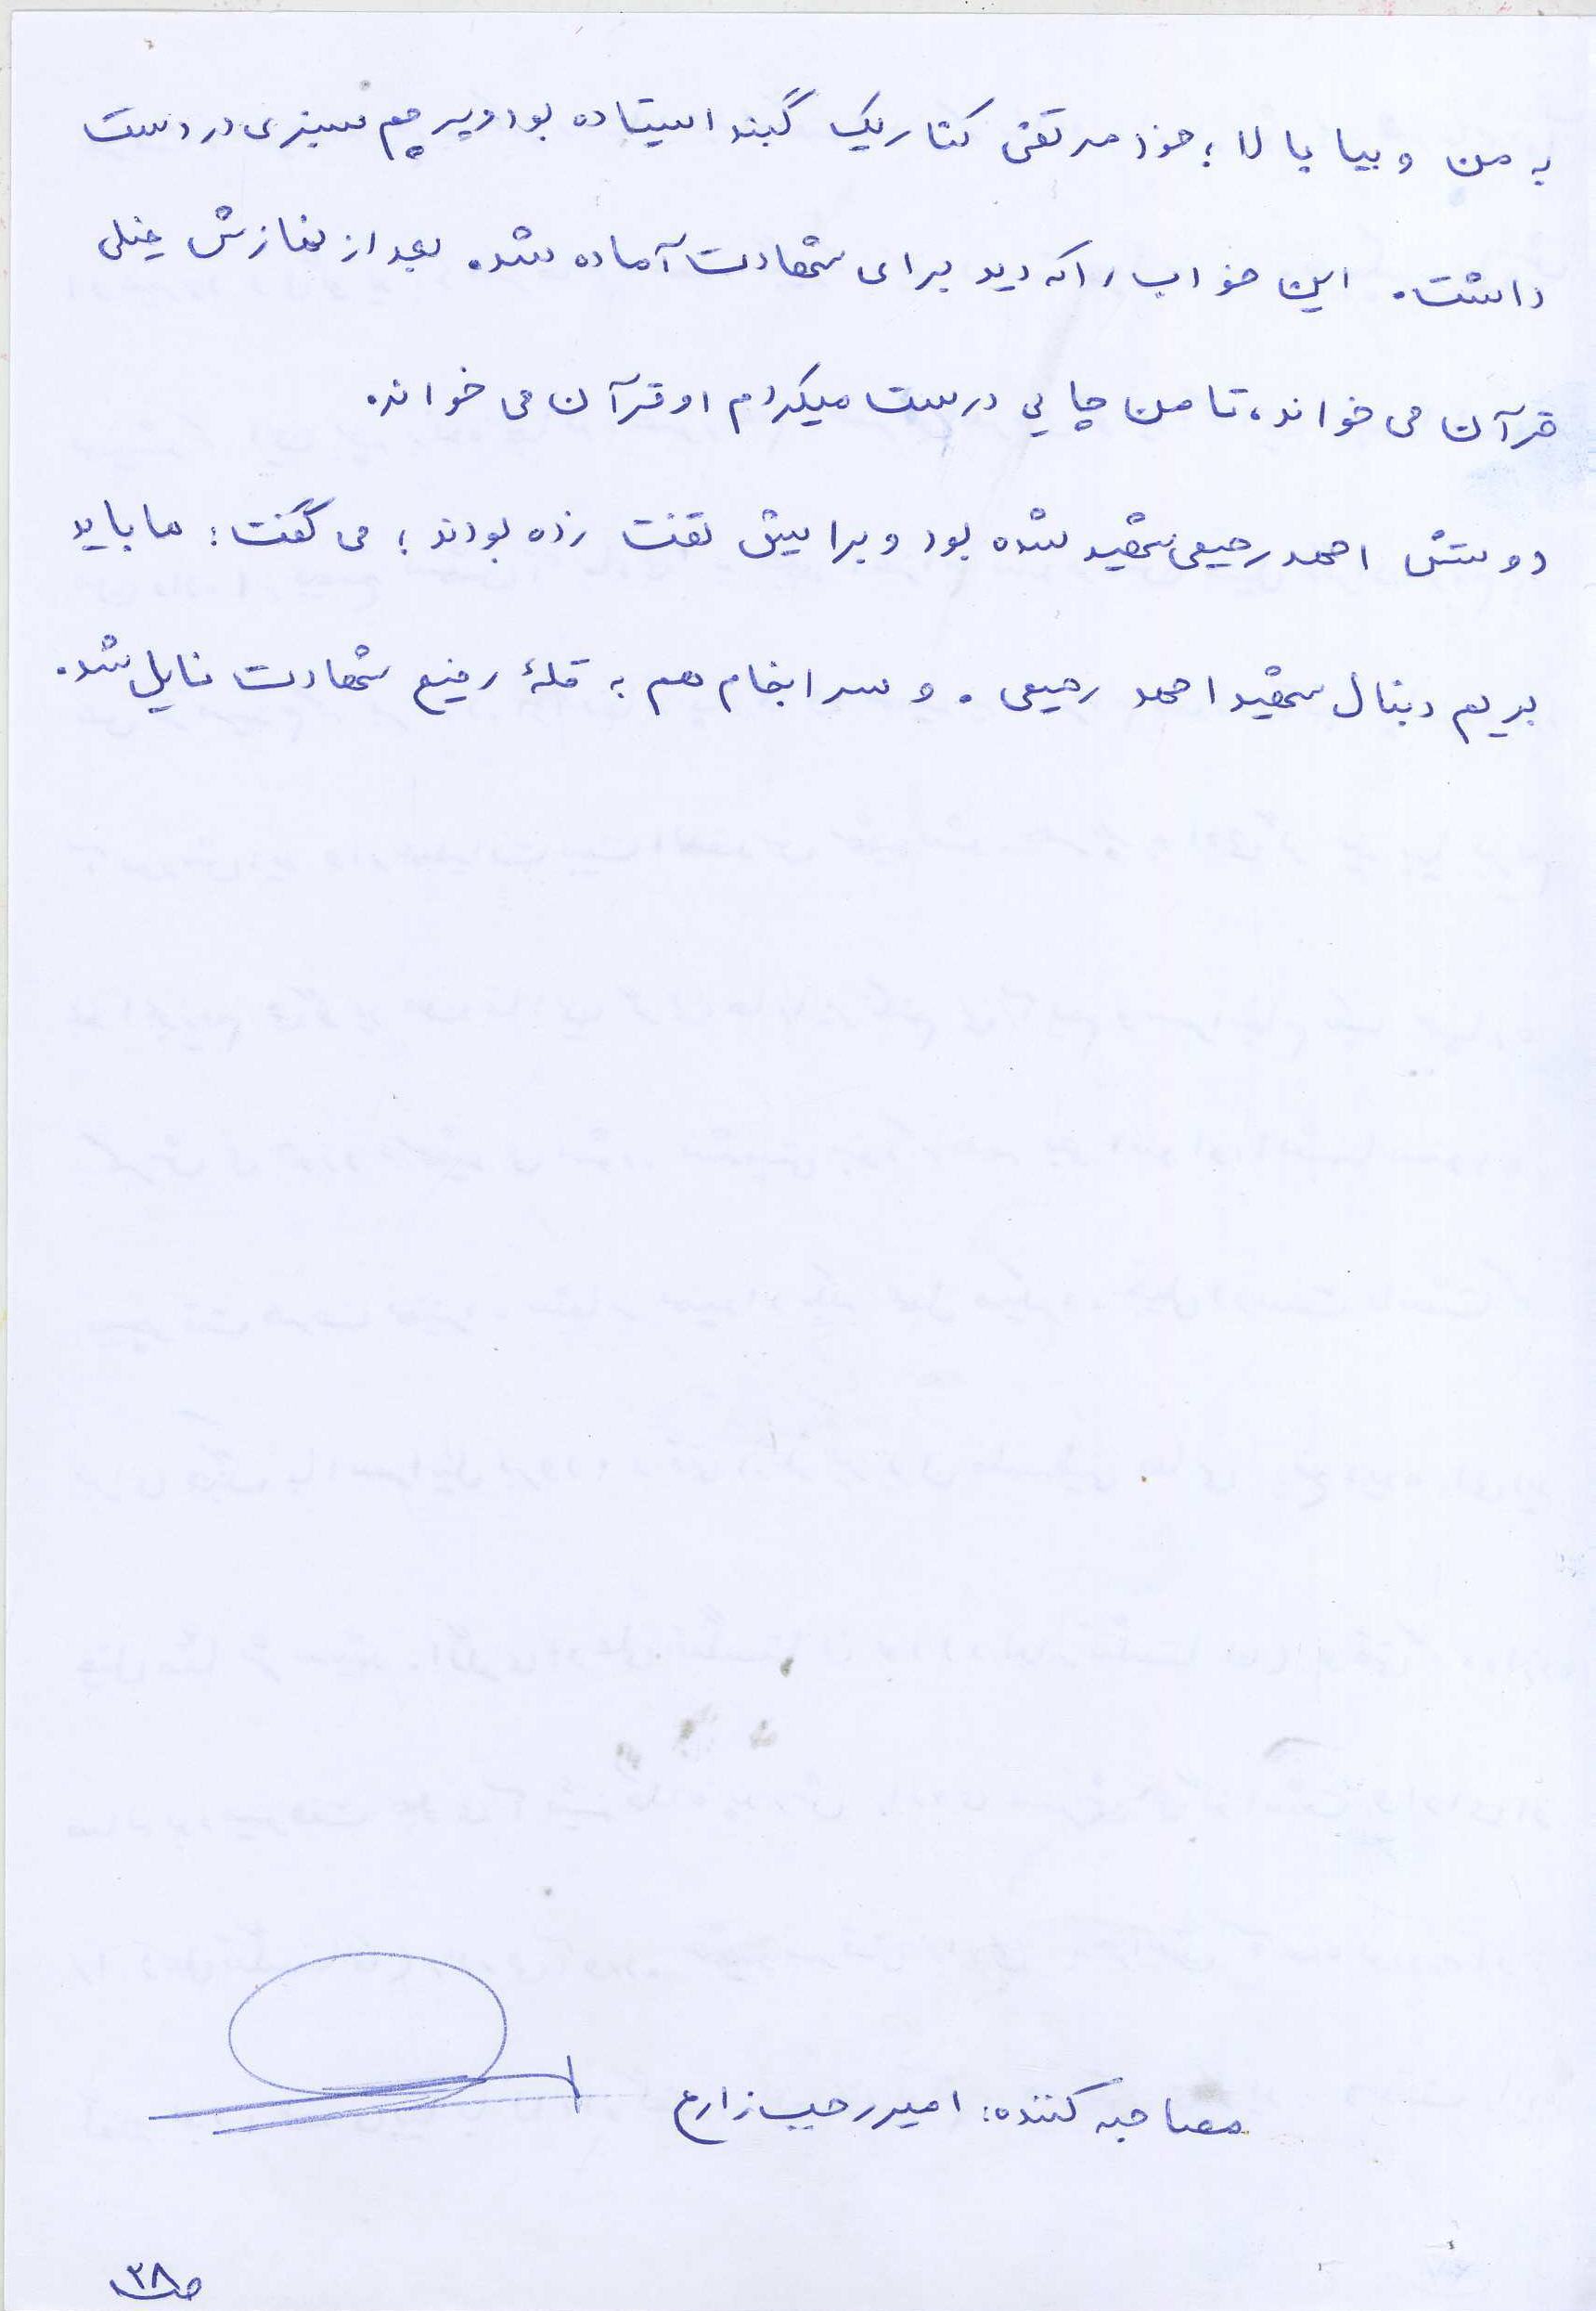 به من و بیا بالا؛ خود مرتضی کنار یک گنبد ایستاده بود و پرچم سبزی در دست
داشت. این خواب را که دید برای شهادت آماده شد. بعد از نمازش خیلی
قرآن می خواند، تا من چایی درست میکردم او قرآن می خواند.
دوستش احمد رحیمی شهید شده بود و برایش تفت زده بودند؛ می گفت: ما باید
بریم دنبال شهید احمد رحیمی. و سرانجام هم به قلهٔ رفیع شهادت نایل شد.
مصاحبه کننده: امیررجب زارع
ص ۳۸